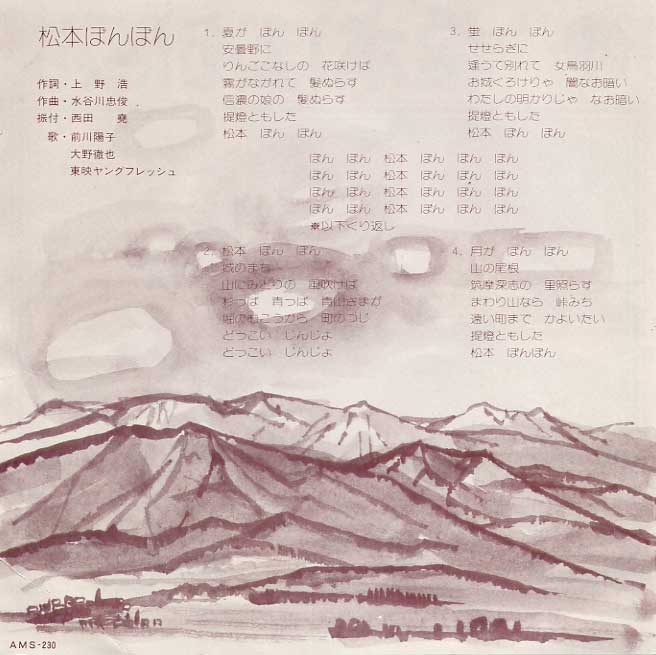 松本ぼんぼん
作詞・上野 浩
作曲・水谷川忠俊
振付・西田 堯
歌・前川陽子
大野徹也
東映ヤングフレッシュ
1. 夏が ぼん ぼん
安曇野に
りんごこなしの 花咲けば
霧がながれて 髪ぬらす
信濃の娘の 髪ぬらす
提燈ともした
松本 ぼん ぼん
3. 蛍 ぼん ぼん
せせらぎに
逢うて別れて 女鳥羽川
お城くろけりゃ 闇なお暗い
わたしの明かりじゃ なお暗い
提燈ともした
松本 ぼん ぼん
ぼん ぼん 松本 ぼん ぼん ぼん
ぼん ぼん 松本 ぼん ぼん ぼん
ぼん ぼん 松本 ぼん ぼん ぼん
ぼん ぼん 松本 ぼん ぼん ぼん
※以下くり返し
2. 松本 ぼん ぼん
城のまち
山にみどりの 風吹けば
杉っば 青っば 青山さまが
堀のむこうから 町のつじ
どっこい じんじょ
どっこい じんじょ
4. 月が ぼん ぼん
山の尾根
筑摩深志の 里照らす
まわり山なら 峠みち
遠い町まで かよいたい
提燈ともした
松本 ぼんぼん
AMS-230